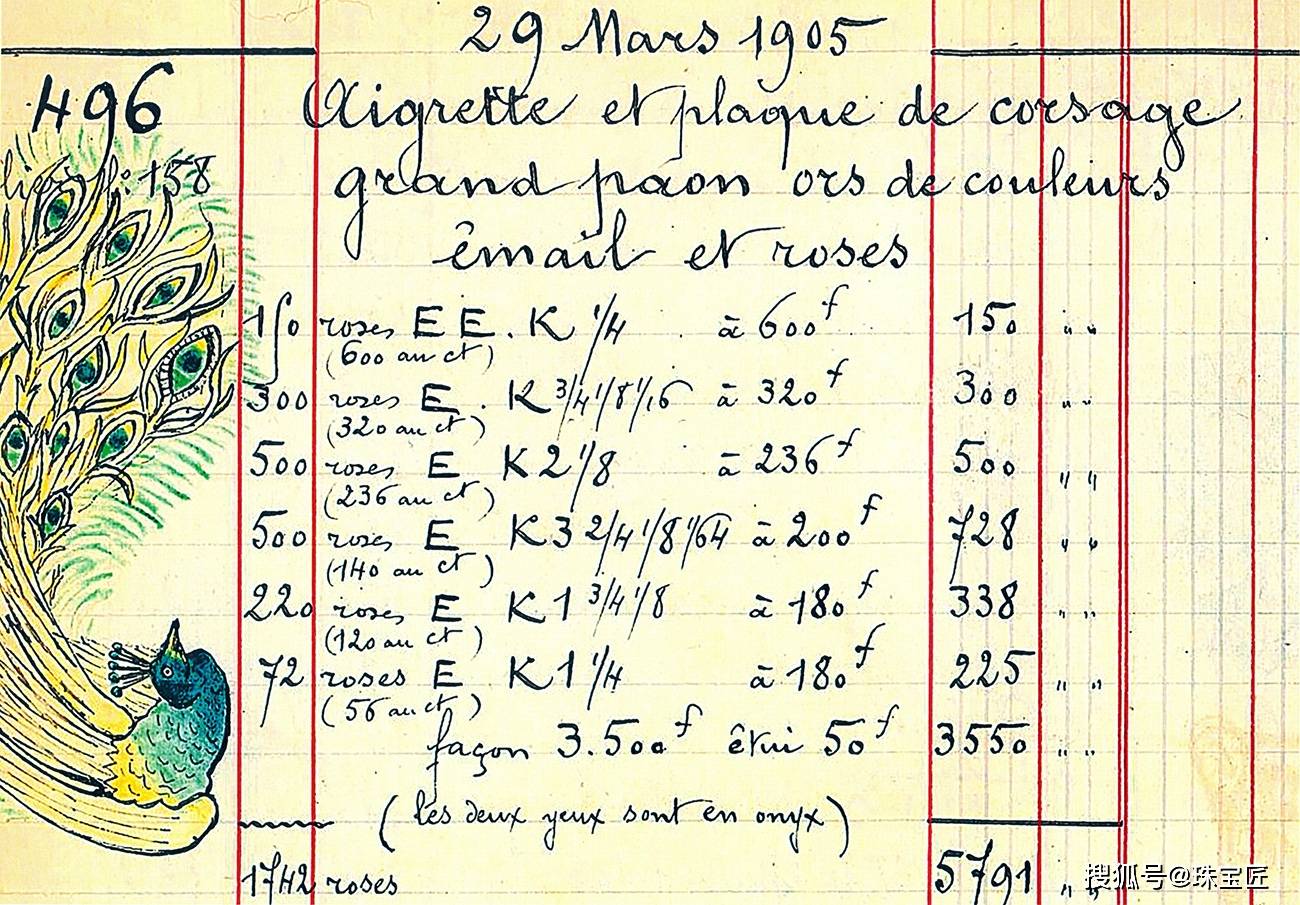 29 Mars 1905
496
Aigrette et plaque de corsage
158
grand paon ors de couleurs
êmail et roses
150 roses E E. K 1/4 à 600f 150 " "
(600 au ct)
300 roses E. K 3/4 1/8 1/16 à 320f 300 " "
(320 au ct)
500 roses E K 2 1/8 à 236f 500 " "
(236 au ct)
500 roses E K 3 2/4 1/8 1/64 à 200f 728 " "
(140 au ct)
220 roses E K 1 3/4 1/8 à 180f 338 " "
(120 au ct)
72 roses E K 1 1/4 à 180f 225 " "
(56 au ct)
façon 3.500f êtui 50f 3550 " "
(les deux yeux sont en onyx)
1742 roses 5791 " "
搜狐号@珠宝匠